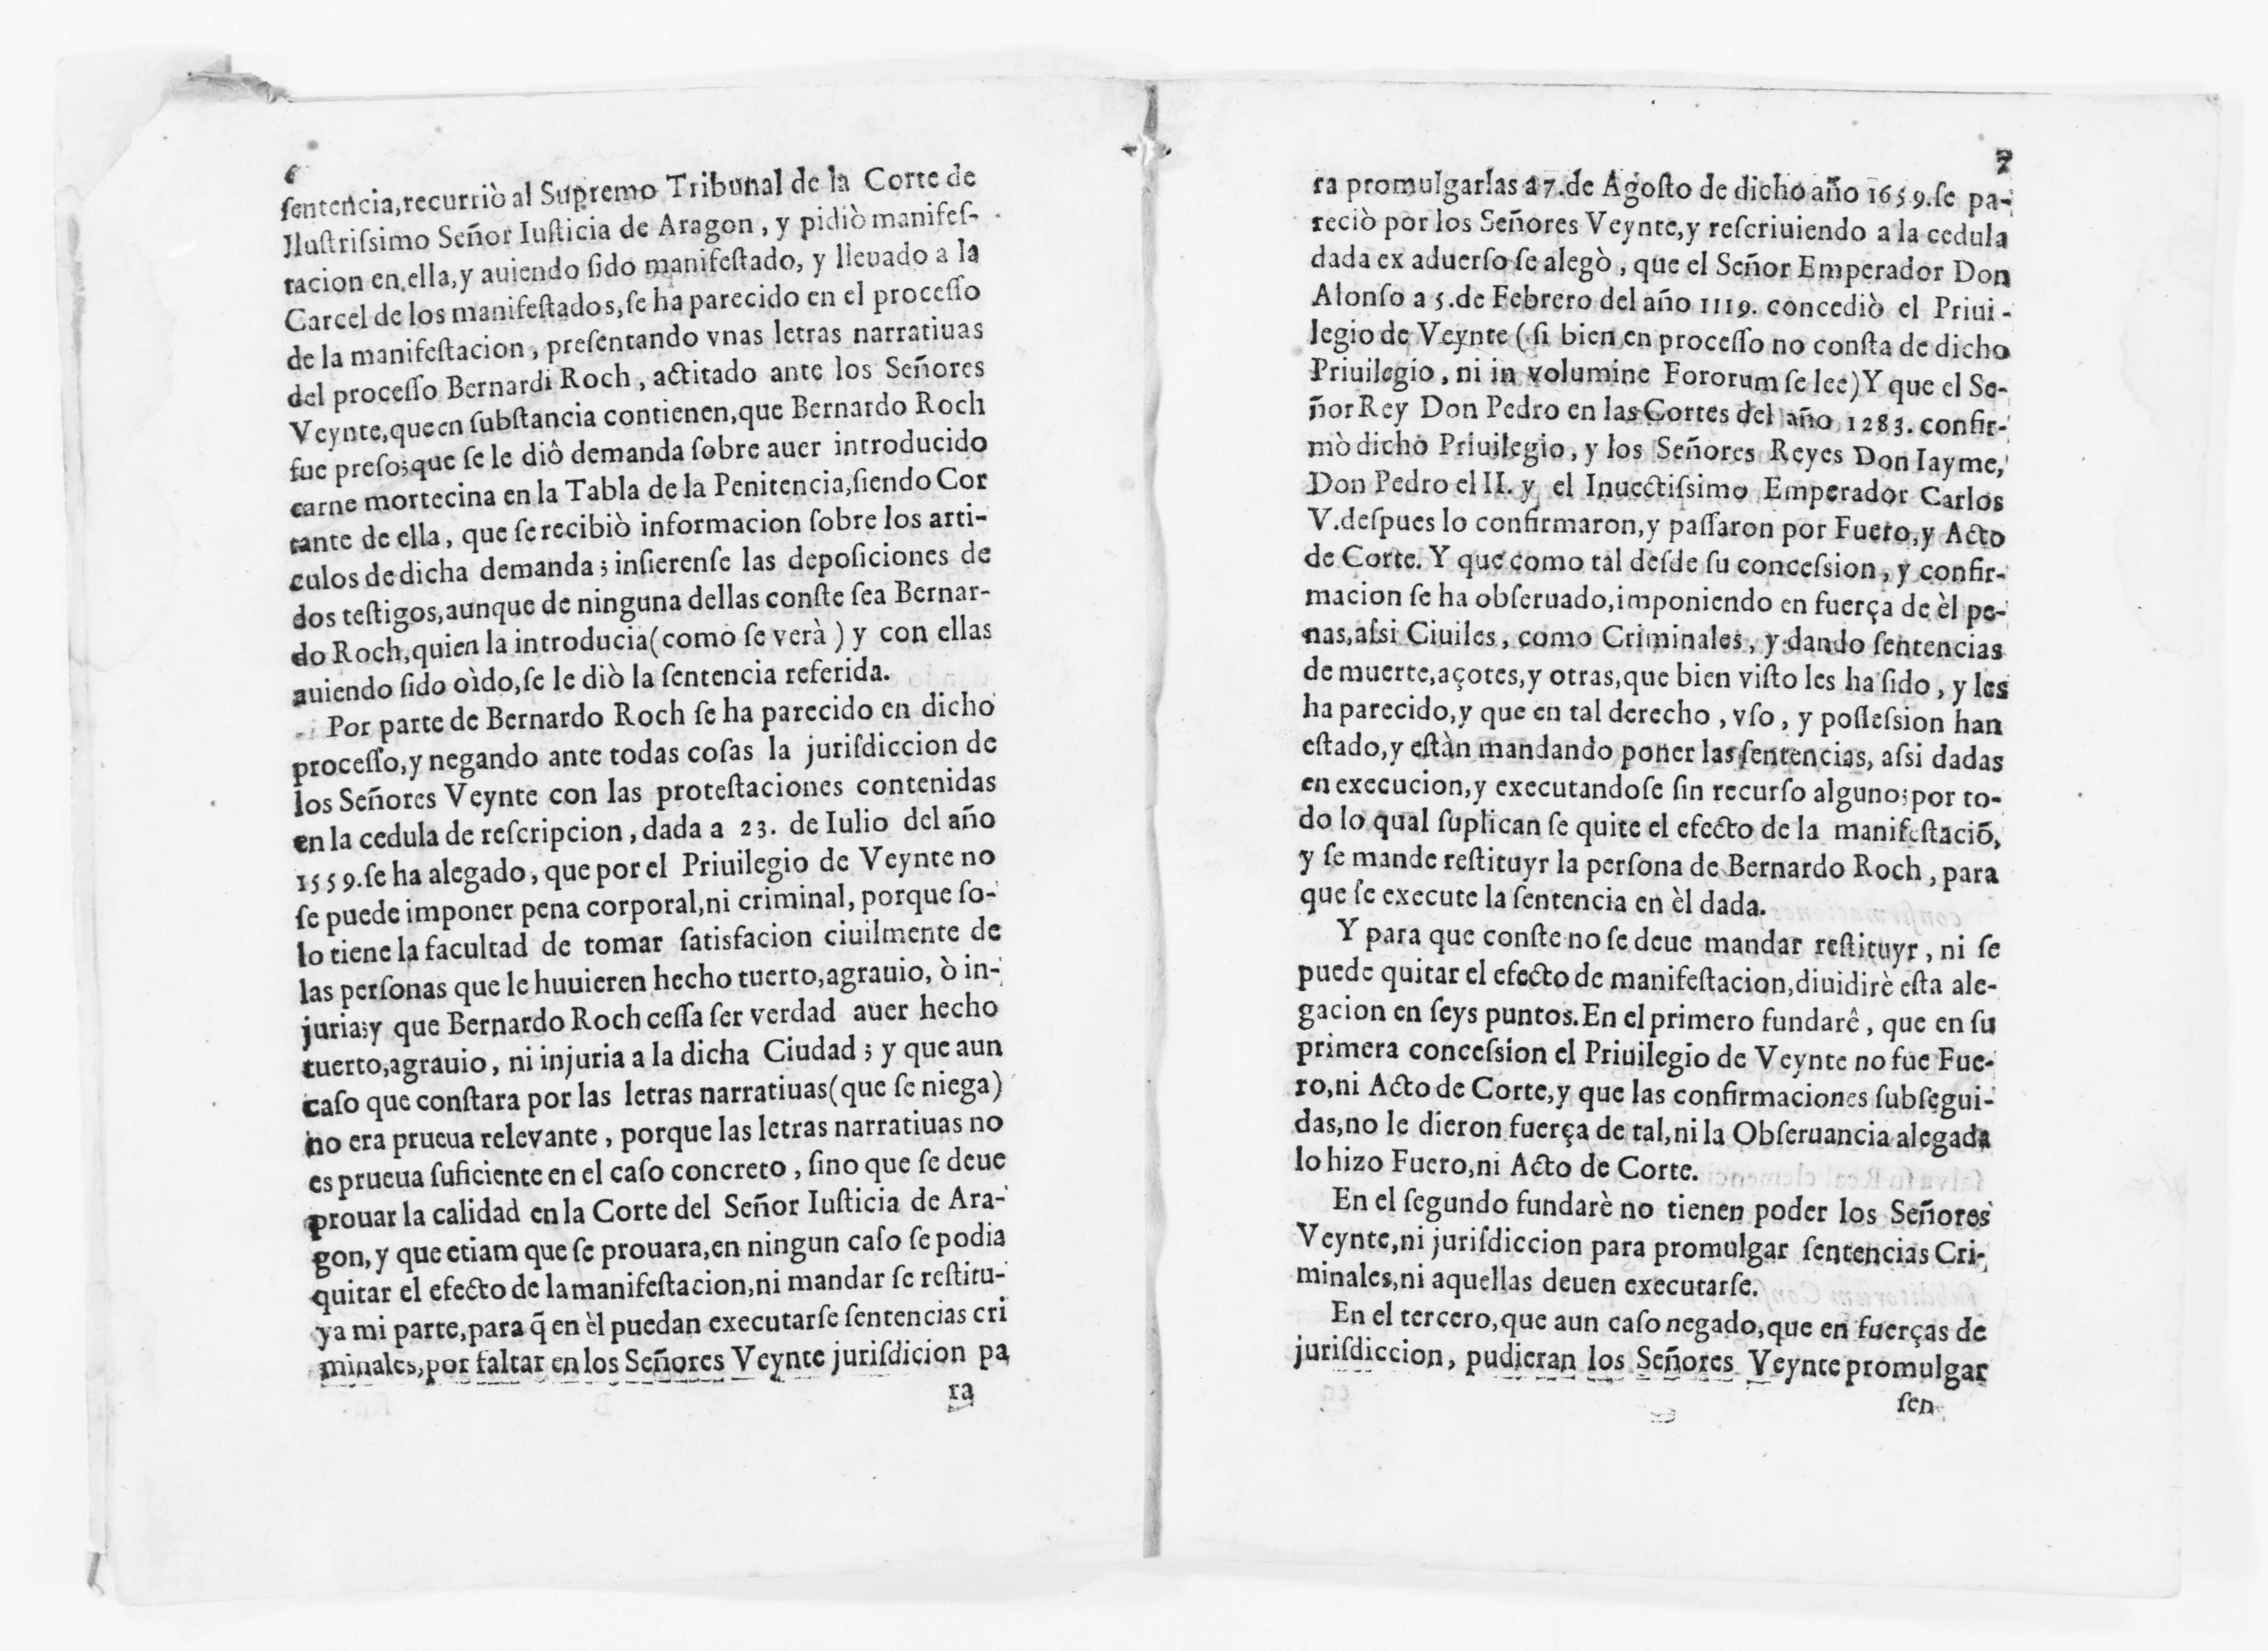 6
ſentencia,recurriò al Supremo Tribunal de la Corte de
Iluſtriſsimo Señor Iuſticia de Aragon, y pidiò manifeſ-
tacion en ella,y auiendo ſido manifeſtado, y lleuado a la
Carcel de los manifeſtados,ſe ha parecido en el proceſſo
de la manifeſtacion, preſentando vnas letras narratiuas
del proceſſo Bernardi Roch, actitado ante los Señores
Veynte,que en ſubſtancia contienen,que Bernardo Roch
fue preſo;que ſe le diô demanda ſobre auer introducido
carne mortecina en la Tabla de la Penitencia,ſiendo Cor
tante de ella, que ſe recibiò informacion ſobre los arti-
culos de dicha demanda; inſierenſe las depoſiciones de
dos teſtigos,aunque de ninguna dellas conſte ſea Bernar-
do Roch,quien la introducia(como ſe verà) y con ellas
auiendo ſido oìdo,ſe le diò la ſentencia referida.
Por parte de Bernardo Roch ſe ha parecido en dicho
proceſſo,y negando ante todas coſas la juriſdiccion de
los Señores Veynte con las proteſtaciones contenidas
en la cedula de reſcripcion, dada a 23. de Iulio del año
1559.ſe ha alegado, que por el Priuilegio de Veynte no
ſe puede imponer pena corporal,ni criminal, porque ſo-
lo tiene la facultad de tomar ſatisfacion ciuilmente de
las perſonas que le huuieren hecho tuerto,agrauio, ò in-
juria;y que Bernardo Roch ceſſa ſer verdad auer hecho
tuerto,agrauio, ni injuria a la dicha Ciudad; y que aun
caſo que conſtara por las letras narratiuas(que ſe niega)
no era prueua relevante, porque las letras narratiuas no
es prueua ſuficiente en el caſo concreto, ſino que ſe deue
prouar la calidad en la Corte del Señor Iuſticia de Ara-
gon, y que etiam que ſe prouara,en ningun caſo ſe podia
quitar el efecto de la manifeſtacion,ni mandar ſe reſtitu-
ya mi parte,para q̃ en èl puedan executarſe ſentencias cri
minales,por faltar en los Señores Veynte juriſdicion pa
ra
7
ra promulgarlas a 7.de Agoſto de dicho año 1659.ſe pa-
reciò por los Señores Veynte,y reſcriuiendo a la cedula
dada ex aduerſo ſe alegò, que el Señor Emperador Don
Alonſo a 5.de Febrero del año 1119. concediò el Priui-
legio de Veynte (ſi bien en proceſſo no conſta de dicho
Priuilegio, ni in volumine Fororum ſe lee)Y que el Se-
ñor Rey Don Pedro en las Cortes del año 1283. confir-
mò dicho Priuilegio, y los Señores Reyes Don Iayme,
Don Pedro el II. y el Inuectiſsimo Emperador Carlos
V.deſpues lo confirmaron,y paſſaron por Fuero,y Acto
de Corte. Y que como tal deſde ſu conceſsion, y confir-
macion ſe ha obſeruado,imponiendo en fuerça de èl pe-
nas,aſsi Ciuiles, como Criminales, y dando ſentencias
de muerte,açotes,y otras,que bien viſto les ha ſido, y les
ha parecido,y que en tal derecho, vſo, y poſſeſsion han
eſtado,y eſtàn mandando poner las ſentencias, aſsi dadas
en execucion,y executandoſe ſin recurſo alguno;por to-
do lo qual ſuplican ſe quite el efecto de la manifeſtaciõ,
y ſe mande reſtituyr la perſona de Bernardo Roch, para
que ſe execute la ſentencia en èl dada.
Y para que conſte no ſe deue mandar reſtituyr, ni ſe
puede quitar el efecto de manifeſtacion,diuidirè eſta ale-
gacion en ſeys puntos.En el primero fundarê, que en ſu
primera conceſsion el Priuilegio de Veynte no fue Fue-
ro,ni Acto de Corte,y que las confirmaciones ſubſegui-
das,no le dieron fuerça de tal,ni la Obſeruancia alegada
lo hizo Fuero,ni Acto de Corte.
En el ſegundo fundarè no tienen poder los Señores
Veynte,ni juriſdiccion para promulgar ſentencias Cri-
minales,ni aquellas deuen executarſe.
En el tercero,que aun caſo negado,que en fuerças de
juriſdiccion, pudieran los Señores Veynte promulgar
ſen